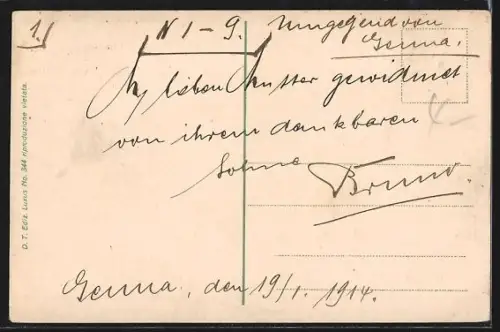 1.)
N 1-9.
Umgegend von
Genua.
lieben Mutter gewidmet
von ihrem dankbaren
Sohne
Bruno.
Genua, den 19/1. 1914.
D. T. Ediz. Luxus No. 344 riproduzione vietata.